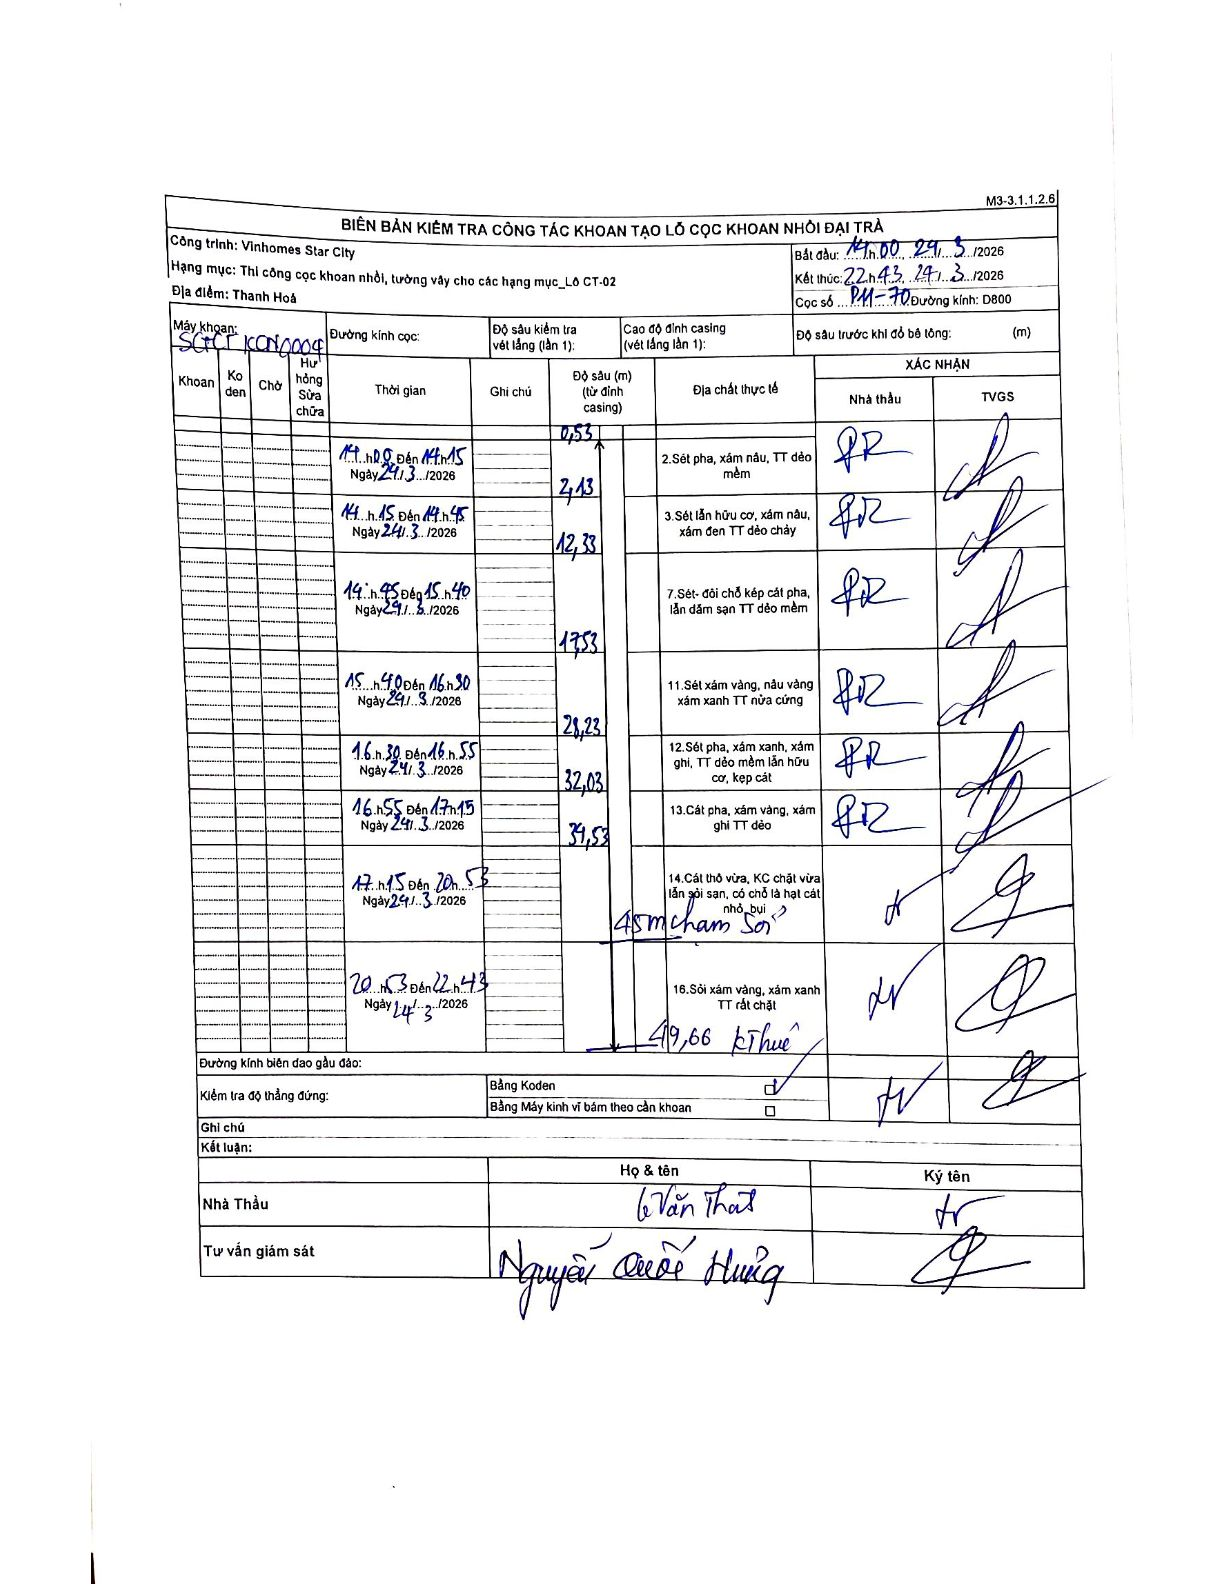 M3-3.1.1.2.6
BIÊN BẢN KIỂM TRA CÔNG TÁC KHOAN TẠO LỖ CỌC KHOAN NHỒI ĐẠI TRÀ
Công trình: Vinhomes Star City
Hạng mục: Thi công cọc khoan nhồi, tường vây cho các hạng mục_Lô CT-02
Địa điểm: Thanh Hoá
Bắt đầu: 14.h.00, 24/...3.../2026
Kết thúc: 22.h.43, 24/...3.../2026
Cọc số ...P11-70 Đường kính: D800
Máy khoan:
Đường kính cọc:
Độ sâu kiểm tra vét lắng (lần 1):
Cao độ đỉnh casing (vét lắng lần 1):
Độ sâu trước khi đổ bê tông: (m)
Khoan
Ko den
Chờ
Hư hỏng Sửa chữa
Thời gian
Ghi chú
Độ sâu (m) (từ đỉnh casing)
Địa chất thực tế
XÁC NHẬN
Nhà thầu
TVGS
0,53
14.h00 Đến 14.h15
Ngày 24/.3../2026
2.Sét pha, xám nâu, TT dẻo mềm
2,13
14.h.15 Đến 14.h.45
Ngày 24/.3../2026
3.Sét lẫn hữu cơ, xám nâu, xám đen TT dẻo chảy
12,33
14.h.45 Đến 15.h.40
Ngày 24/..3../2026
7.Sét- đôi chỗ kép cát pha, lẫn dăm sạn TT dẻo mềm
17,53
15...h.40 Đến 16.h30
Ngày 24/..3../2026
11.Sét xám vàng, nâu vàng xám xanh TT nửa cứng
28,23
16.h.30 Đến 16.h.55
Ngày 24/.3../2026
12.Sét pha, xám xanh, xám ghi, TT dẻo mềm lẫn hữu cơ, kẹp cát
32,03
16.h55 Đến 17h15
Ngày 24/..3../2026
13.Cát pha, xám vàng, xám ghi TT dẻo
34,53
17..h.15 Đến 20h...53
Ngày 24/..3../2026
14.Cát thô vừa, KC chặt vừa lẫn sỏi sạn, có chỗ là hạt cát nhỏ, bụi
45m chạm sỏi
20..h53 Đến 22.h.43
Ngày 24/..3./2026
16.Sỏi xám vàng, xám xanh TT rất chặt
49,66 kThuê
Đường kính biên dao gầu đào:
Kiểm tra độ thẳng đứng:
Bằng Koden
Bằng Máy kinh vĩ bám theo cần khoan
Ghi chú
Kết luận:
Họ & tên
Ký tên
Nhà Thầu
Lê Văn That
Tư vấn giám sát
Nguyễn Quốc Hưng